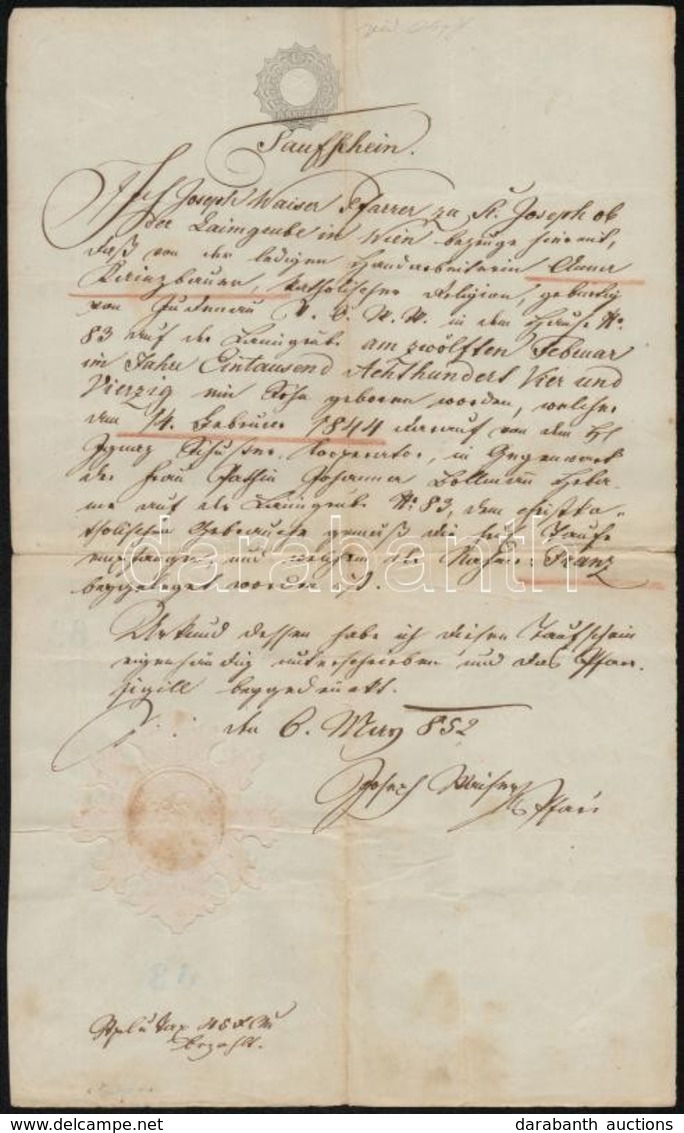 Taufschein.
Ich Joseph Waiser Pfarrer zu St. Joseph ob
der Laimgrube in Wien bezeuge hiemit,
daß von der ledigen Handarbeiterin Anna
Kainzbauer, katholischer Religion, gebürtig
von Judenau V. O. W. W. in dem Hause No.
83 auf der Laimgrube am zwölften Februar
im Jahre Eintausend Achthundert Vier und
Vierzig ein Sohn geboren worden, welcher
den 14. Februar 1844 darauf von dem H
Ignaz Schuster, Kooperator, in Gegenwart
der Frau Pathin Johanna Bollmann Heba-
me auf der Laimgrube No 83, dem christka-
tholischen Gebrauche gemäß die heil. Taufe
empfangen, und welchem der Name: Franz
beygeleget worden ist.
Urkund dessen habe ich diesen Taufschein
eigenhändig unterschrieben und das Pfarr-
sigill beygedruckt.
den 6. May 852
Joseph Waiser
Pfarr
Tax 45 x CM
bezahlt.
darabanth
www.delcampe.net
darabanth auctions